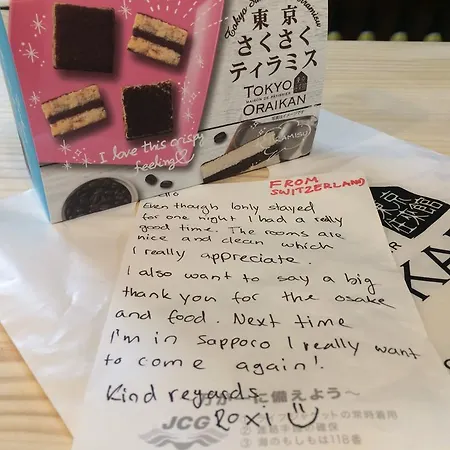 東京
さくさく
ティラミス
TOKYO
ORAIKAN
I love this crispy
feeling
FROM
SWITZERLAND
Even though I only stayed
for one night I had a really
good time. The rooms are
nice and clean which
I really appreciate.
I also want to say a big
thank you for the osake
and food. Next time
I'm in Sapporo I really want
to come again!
Kind regards
Roxi
に備えよう～
JCG
ジャケットの常時着用
の確保
③海のもしもは118番
東京